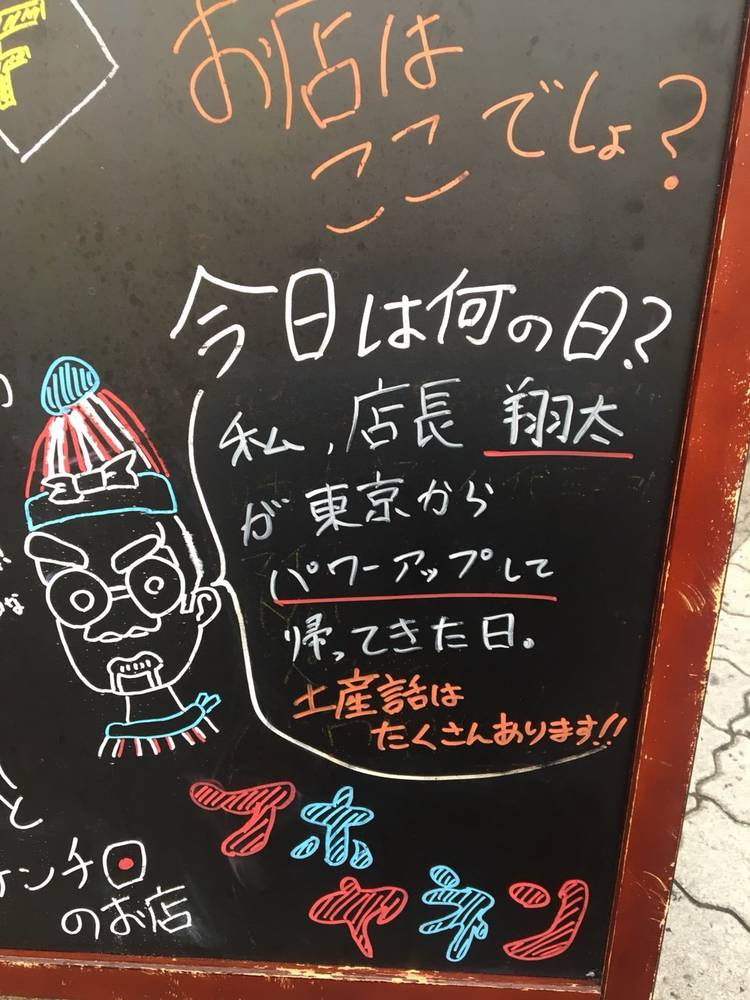 お店は
ここでしょ?
今日は何の日?
私,店長 翔太
が東京から
パワーアップして
帰ってきた日。
土産話は
たくさんあります!!
アホ
ヤネン
ンチロ
のお店